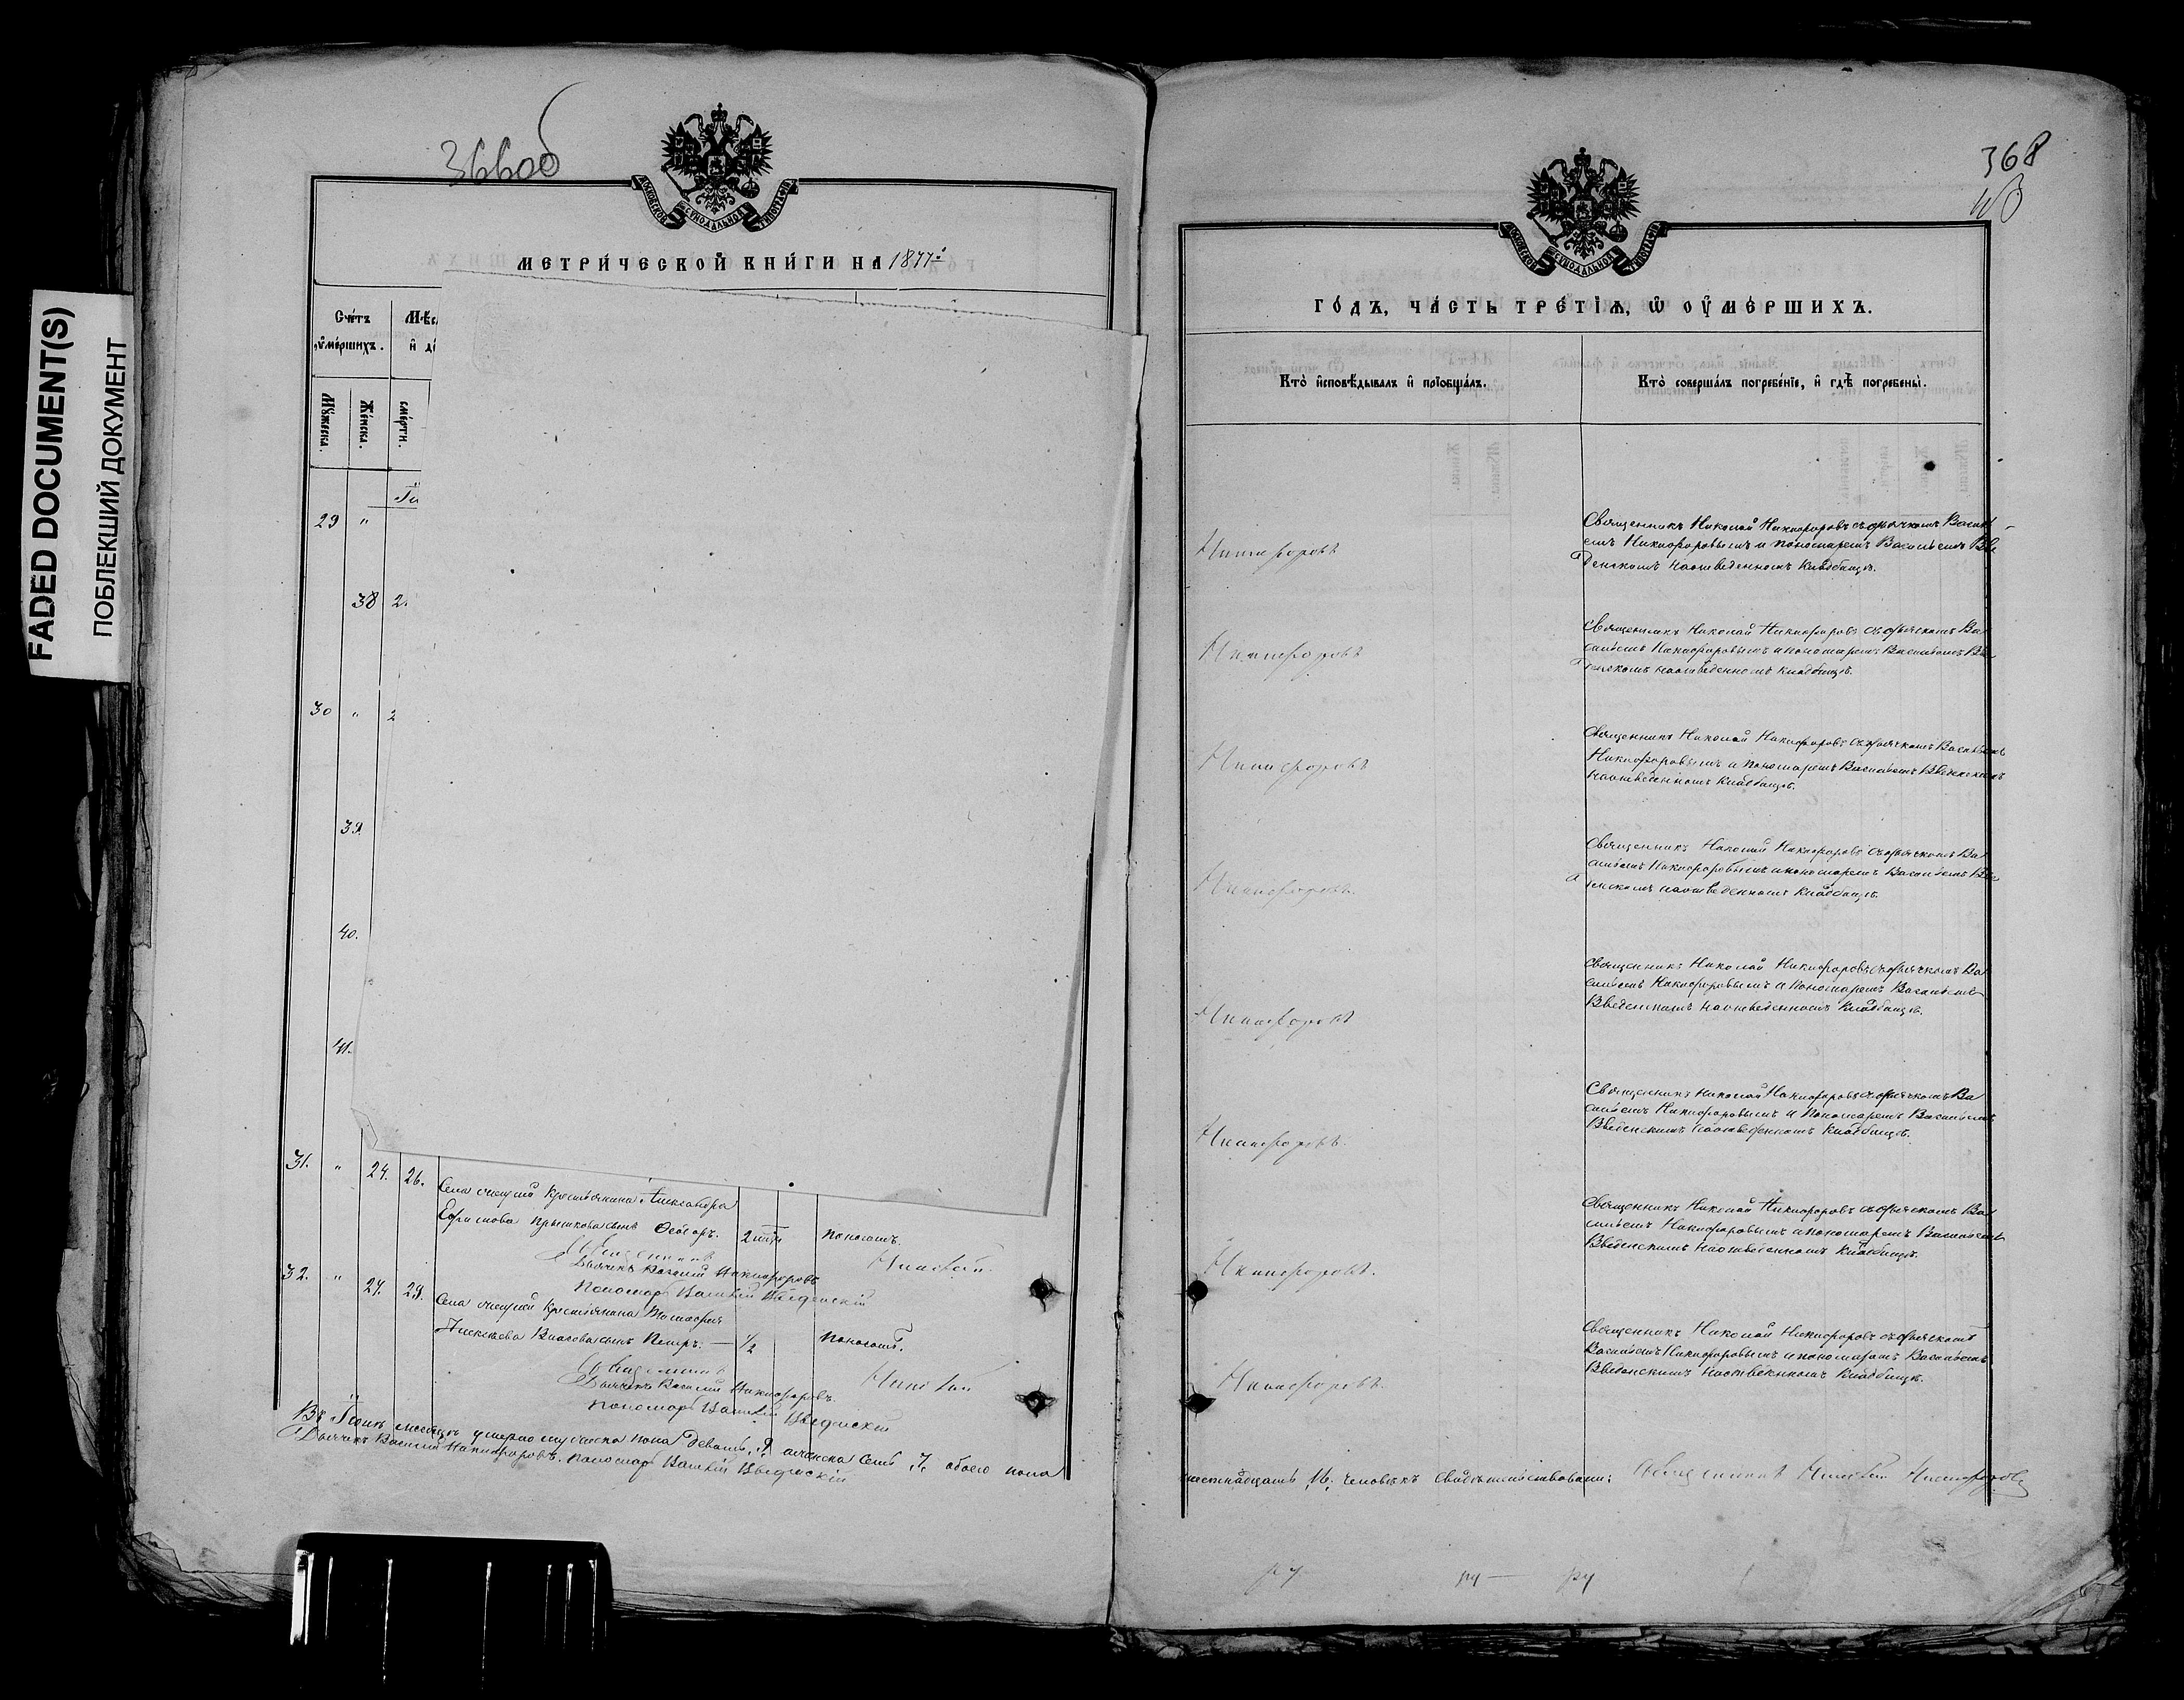 FADED DOCUMENT(S)
ПОБЛЕКШИЙ ДОКУМЕНТ
366об
МОСКОВСКОЙ СѴНОДАЛЬНОЙ ТИПОГРАФІИ
МЕТРИ́ЧЕСКОЙ КНИ́ГИ НА 1877й
Сче́тъ
ᲂу҆ме́ршихъ.
Мѣс
и҆ д
Мꙋ́жеска.
Же́нска.
сме́рти.
29 "
38 2.
30 " 2
39.
40.
41.
31. " 24. 26. Села сицеуй крестьянина Александра
сынъ Ѳеодоръ. поносомъ.
Священникъ Николай
Дьячекъ Василій Никифоровъ
Пономарь Василій Введенскій
32. " 27. 29. Села крестьянина
сынъ Петръ. — 1/2 поносомъ.
Священникъ Николай
Дьячекъ Василій Никифоровъ.
Пономарь Василій Введенскій
Въ Іюнѣ мѣсяцѣ умерло мужеска пола девять, 9. а женска семь 7. обоего пола
Дьячекъ Василій Никифоровъ. Пономарь Василій Введенскій
368
МОСКОВСКОЙ СѴНОДАЛЬНОЙ ТИПОГРАФІИ
ГО́ДЪ, ЧА́СТЬ ТРЕ́ТІѦ, Ѽ ОУ҆МЕ́РШИХЪ.
Кто̀ и҆сповѣ́дывалъ и҆ прїобща́лъ.
Кто̀ соверша́лъ погребе́нїе, и҆ гдѣ̀ погребены̀.
Никифоровъ
Священникъ Николай Никифоровъ съ дьячкомъ Васил
емъ Никифоровымъ и пономаремъ Васильемъ Вве
денскимъ на отведенномъ кладбищѣ.
Никифоровъ
Священникъ Николай Никифоровъ съ дьячкомъ Ва
сильемъ Никифоровымъ и пономаремъ Васильемъ Вве
денскимъ на отведенномъ кладбищѣ.
Никифоровъ
Священникъ Николай Никифоровъ съ дьячкомъ Васильемъ
Никифоровымъ и пономаремъ Васильемъ Введенскимъ
на отведенномъ кладбищѣ.
Никифоровъ.
Священникъ Николай Никифоровъ съ дьячкомъ Ва
сильемъ Никифоровымъ и пономаремъ Васильемъ Вве
денскимъ на отведенномъ кладбищѣ.
Никифоровъ
Священникъ Николай Никифоровъ съ дьячкомъ Ва
сильемъ Никифоровымъ и пономаремъ Васильемъ
Введенскимъ на отведенномъ кладбищѣ.
Никифоровъ.
Священникъ Николай Никифоровъ съ дьячкомъ Ва
сильемъ Никифоровымъ и пономаремъ Васильемъ
Введенскимъ на отведенномъ кладбищѣ.
Никифоровъ.
Священникъ Николай Никифоровъ съ дьячкомъ Ва
сильемъ Никифоровымъ и пономаремъ Васильемъ
Введенскимъ на отведенномъ кладбищѣ.
Никифоровъ.
Священникъ Николай Никифоровъ съ дьячкомъ
Васильемъ Никифоровымъ и пономаремъ Васильемъ
Введенскимъ на отведенномъ кладбищѣ.
шестнадцать 16. человѣкъ свидѣтельствовали: Священникъ Николай Никифоровъ